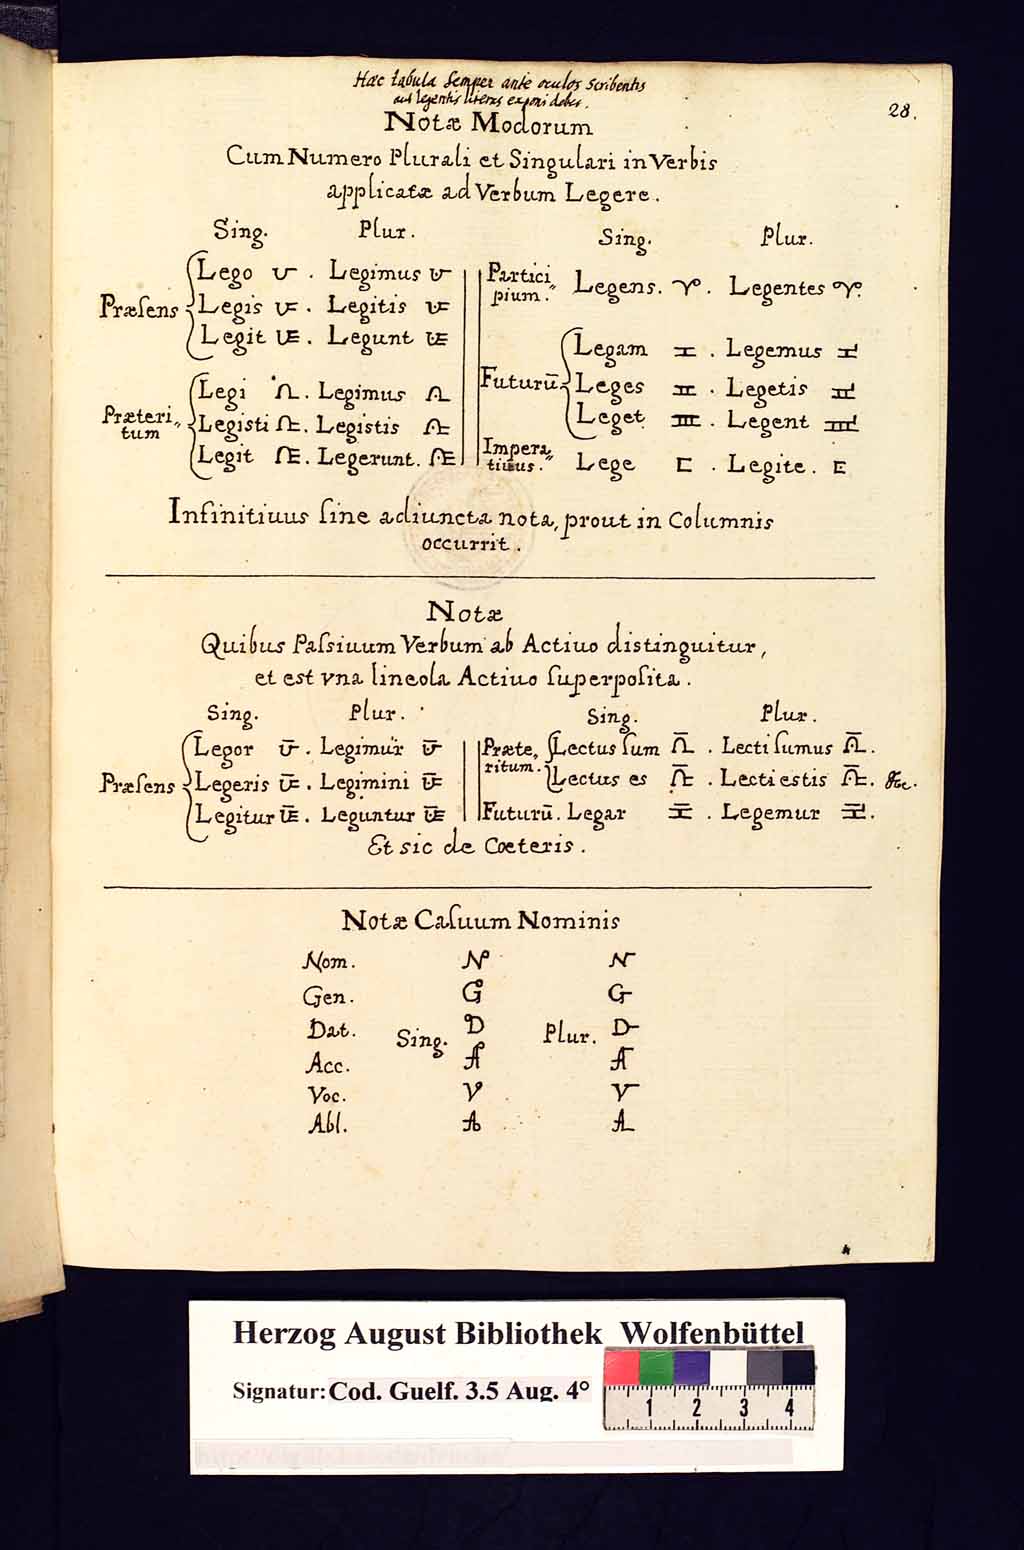 Hæc tabula semper ante oculos scribentis
aut legentis literas exponi debet.
28.
Notæ Modorum
Cum Numero Plurali et Singulari in Verbis
applicatæ ad Verbum Legere.
Sing. Plur.
Præſens
Lego . Legimus
Legis . Legitis
Legit . Legunt
Præteri„
tum
Legi . Legimus
Legisti . Legistis
Legit . Legerunt.
Sing. Plur.
Partici„
pium.
Legens. . Legentes .
Futurū
Legam . Legemus
Leges . Legetis
Leget . Legent
Impera„
tiuus.
Lege . Legite.
Infinitiuus ſine adiuncta nota, prout in Columnis
occurrit.
Notæ
Quibus Paſsiuum Verbum ab Actiuo distinguitur,
et est vna lineola Actiuo ſuperpoſita.
Sing. Plur.
Præſens
Legor . Legimur
Legeris . Legimini
Legitur . Leguntur
Sing. Plur.
Præte„
ritum.
Lectus ſum . Lecti ſumus .
Lectus es . Lecti estis . &c.
Futurū. Legar . Legemur .
Et sic de Cœteris.
Notæ Caſuum Nominis
Nom. N N
Gen. G G
Dat. Sing. D Plur. D
Acc. A A
Voc. V V
Abl. A A
Herzog August Bibliothek Wolfenbüttel
Signatur: Cod. Guelf. 3.5 Aug. 4°
1 2 3 4